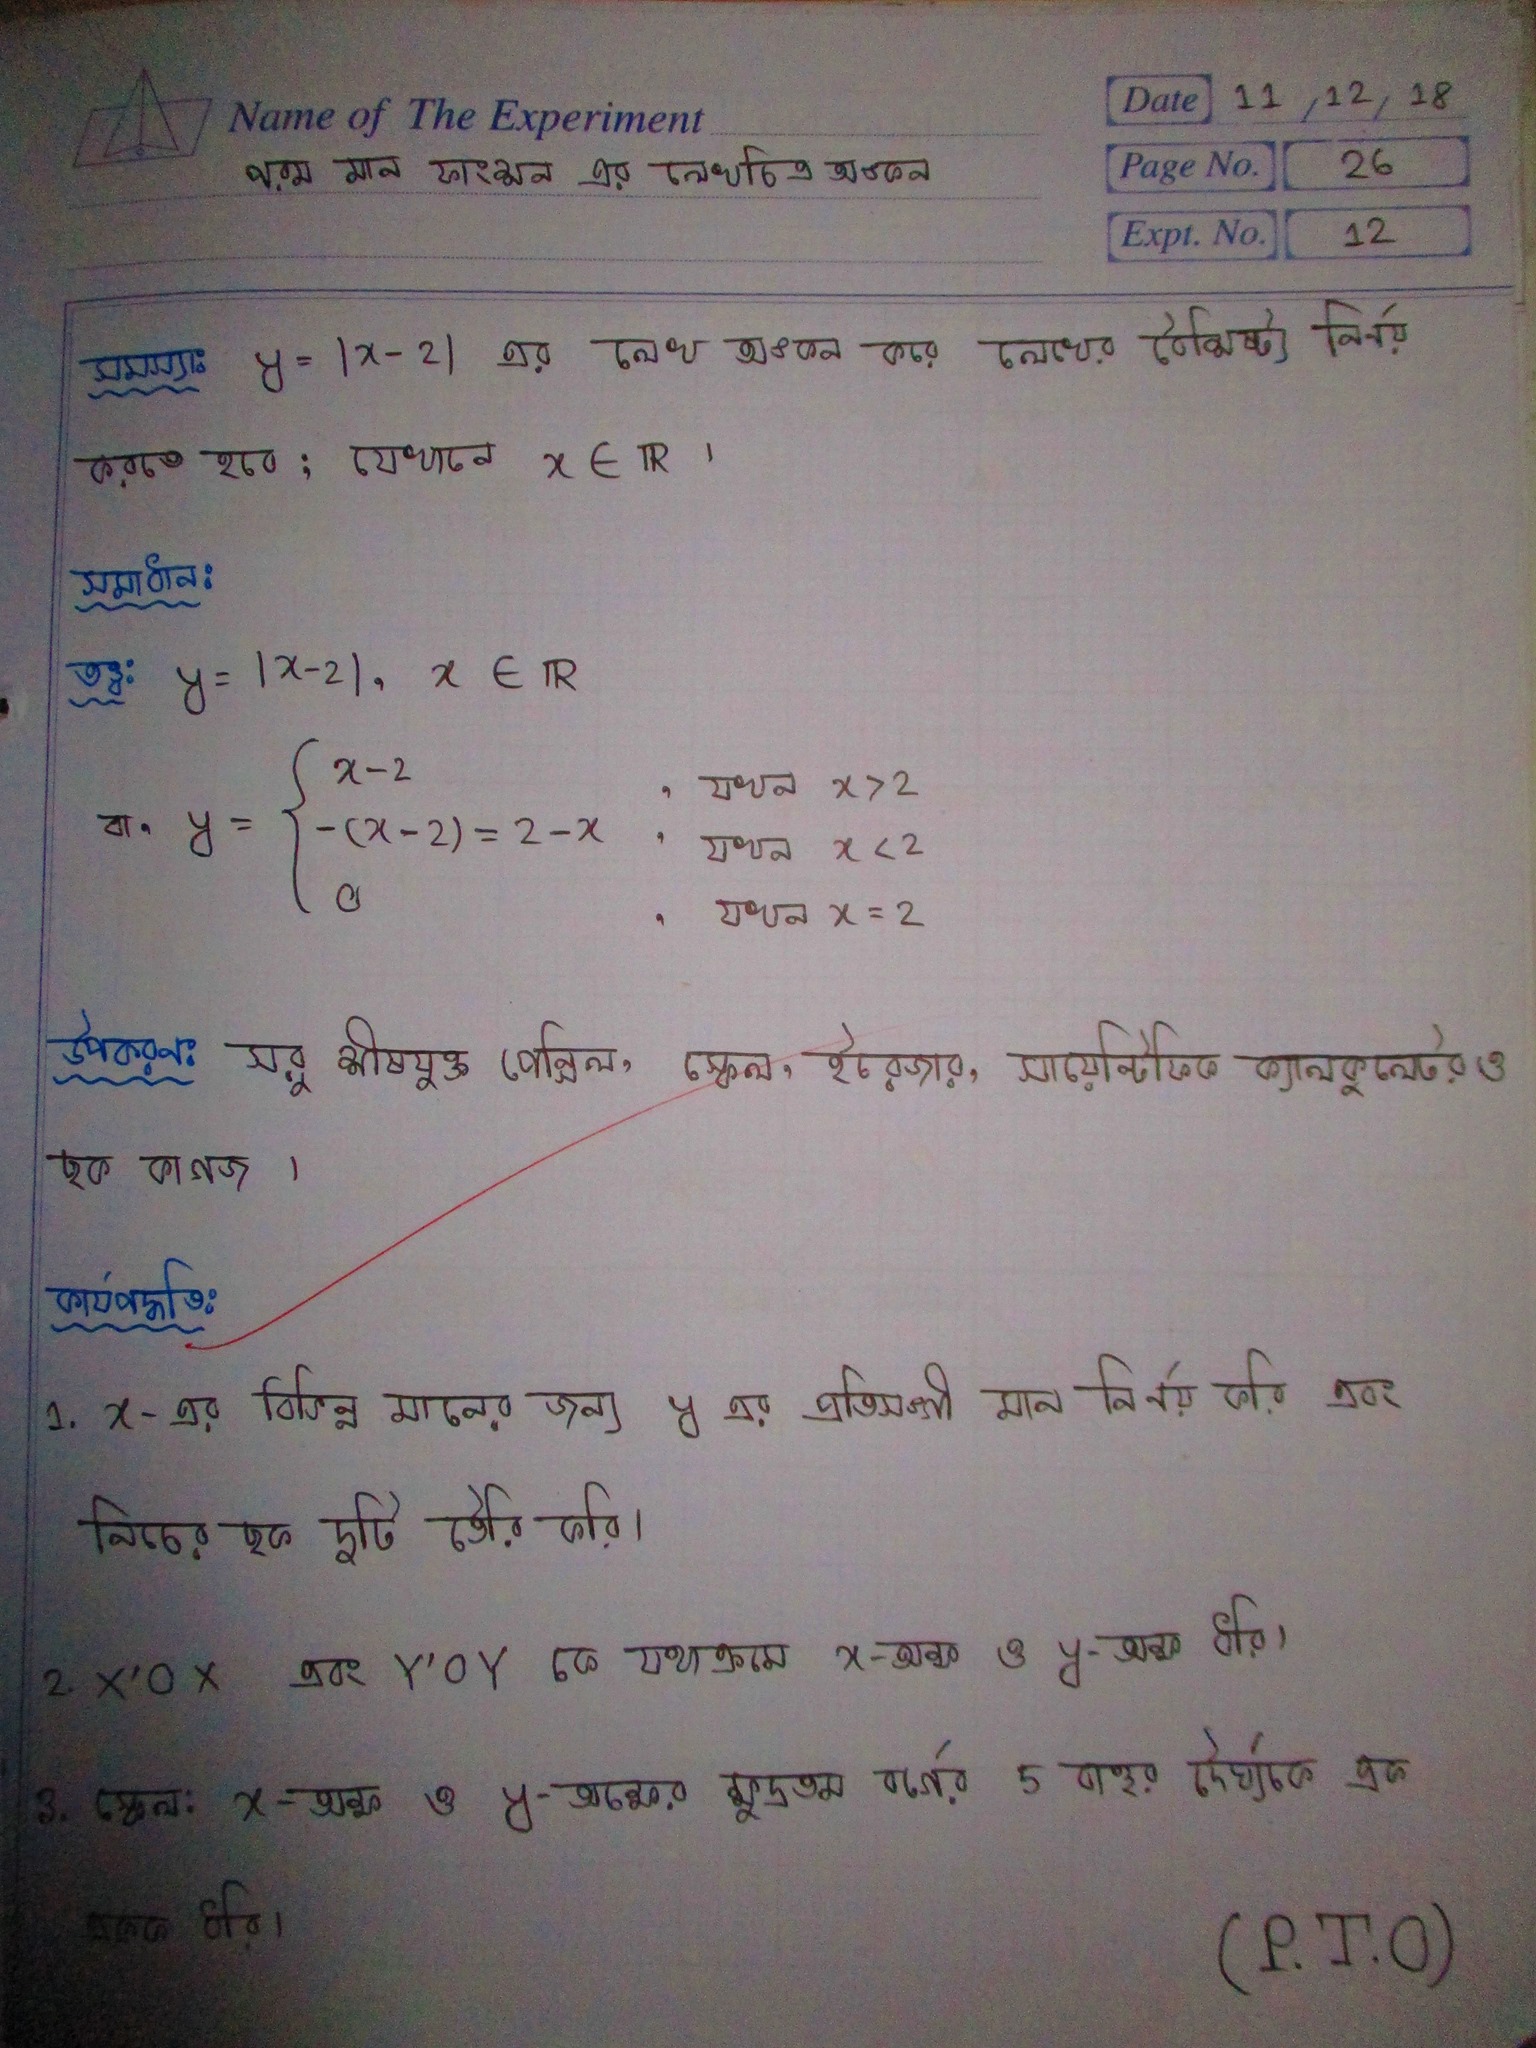 Name of The Experiment
Date 11/12/18
পরম মান ফাংশন এর লেখচিত্র অঙ্কন
Page No. 26
Expt. No. 12
সমস্যাঃ y = |x-2| এর লেখ অঙ্কন করে লেখের বৈশিষ্ট্য নির্ণয়
করতে হবে ; যেখানে x ∈ ℝ ।
সমাধানঃ
তত্ত্বঃ y = |x-2|, x ∈ ℝ
x-2 , যখন x>2
বা, y = { -(x-2) = 2-x , যখন x<2
0 , যখন x = 2
উপকরণঃ সরু শীষযুক্ত পেন্সিল, স্কেল, ইরেজার, সায়েন্টিফিক ক্যালকুলেটর ও
ছক কাগজ ।
কার্যপদ্ধতিঃ
1. x-এর বিভিন্ন মানের জন্য y এর প্রতিসঙ্গী মান নির্ণয় করি এবং
নিচের ছক দুটি তৈরি করি।
2. X'OX এবং Y'OY কে যথাক্রমে x-অক্ষ ও y-অক্ষ ধরি।
3. স্কেল: x-অক্ষ ও y-অক্ষের ক্ষুদ্রতম বর্গের 5 বাহুর দৈর্ঘ্যকে এক
একক ধরি।
(P.T.O)